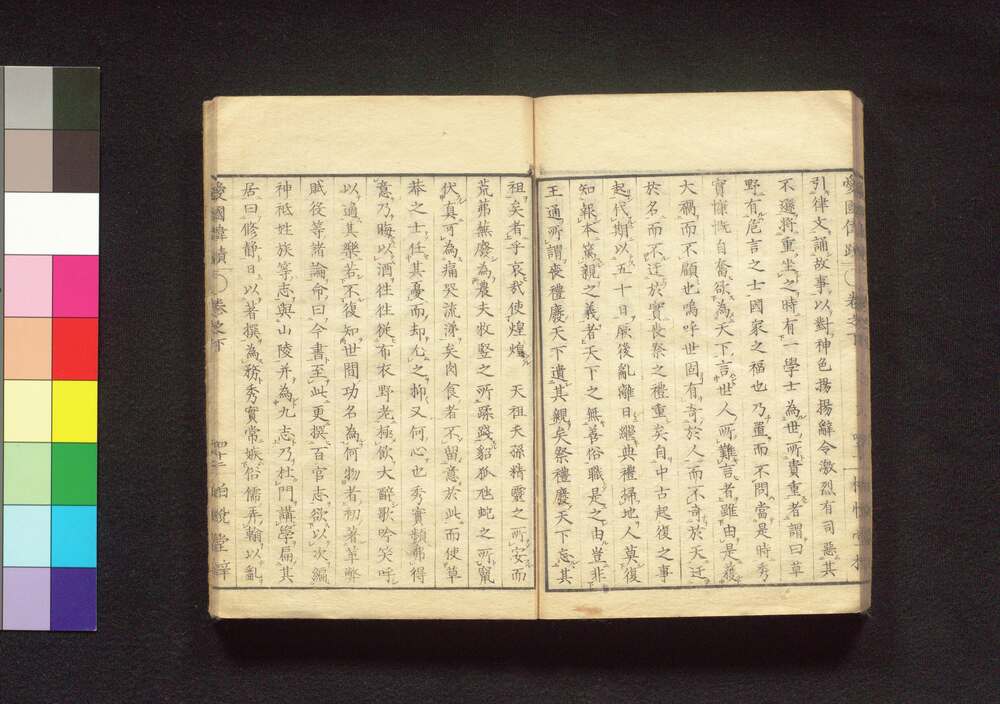 引律文誦故事以對神色揚揚辭令激烈有司惡其
不遜將重坐之時有一學士為世所貴重者謂曰草
野有危言之士國家之福也乃置而不問當是時秀
實慷慨自奮欲為天下言世人所難言者雖由是獲
大禍而不顧也嗚呼世固有奇於人而不奇於天迂
於名而不迂於實喪祭之禮重矣自中古起復之事
起代期以五十日厥後亂離日繼典禮掃地人莫復
知報本篤親之義者天下之無善俗職是之由豈非
王通所謂喪禮廢天下遺其親矣祭禮廢天下忘其
祖矣者乎哀哉使煌煌 天祖天孫精靈之所安而
荒茀蕪廢為農夫牧豎之所蹂踐貂狐虺蛇之所竄
伏真可為痛哭流涕矣肉食者不留意於此而使草
莽之士任其憂而却尤之抑又何心也秀實頻弗得
意乃晦以酒往往從布衣野老極飲大醉歌吟笑呼
以適其樂若不復知世間功名為何物者初著革弊
賦役等諸論命曰今書至此更撰百官志欲以次編
神祇姓族等志與山陵并為九志乃杜門講學扁其
居曰修靜日以著撰為務秀實常嫉俗儒弄翰以亂
愛國偉績 卷之下 四十二